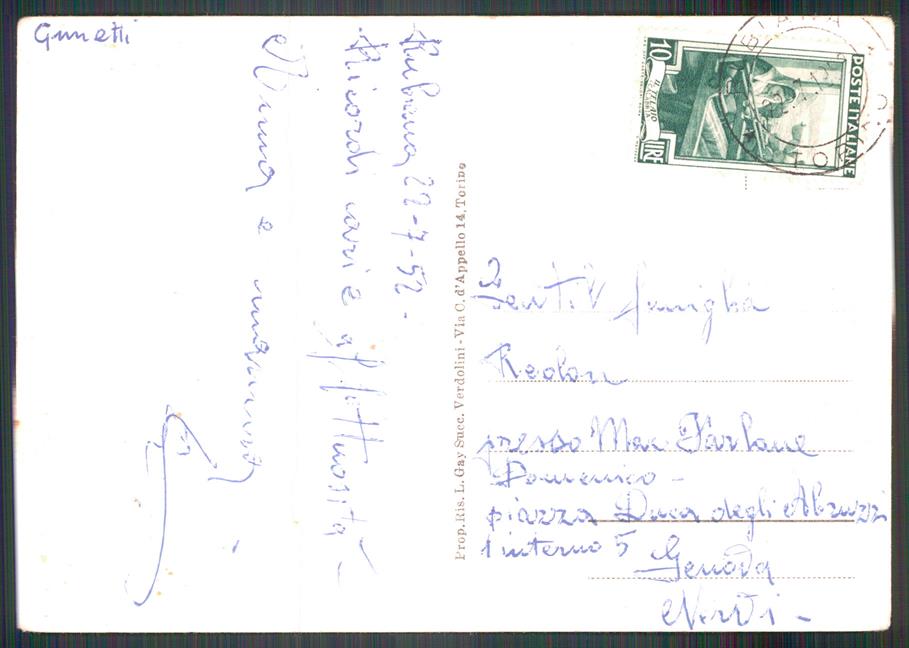 Gunetti
Rubiana 22-7-52-
Ricordi cari e affettuosità-
Nina e mamma
Prop. Ris. L. Gay Succ. Verdolini - Via C. d'Appello 14, Torino
10
LIRE
IL TELAIO
POSTE ITALIANE
RUBIANA
TORINO
Gentil famiglia
Reolon
presso Mac Farlane
Domenico-
piazza Duca degli Abruzzi
1 interno 5 Genova
Nervi-